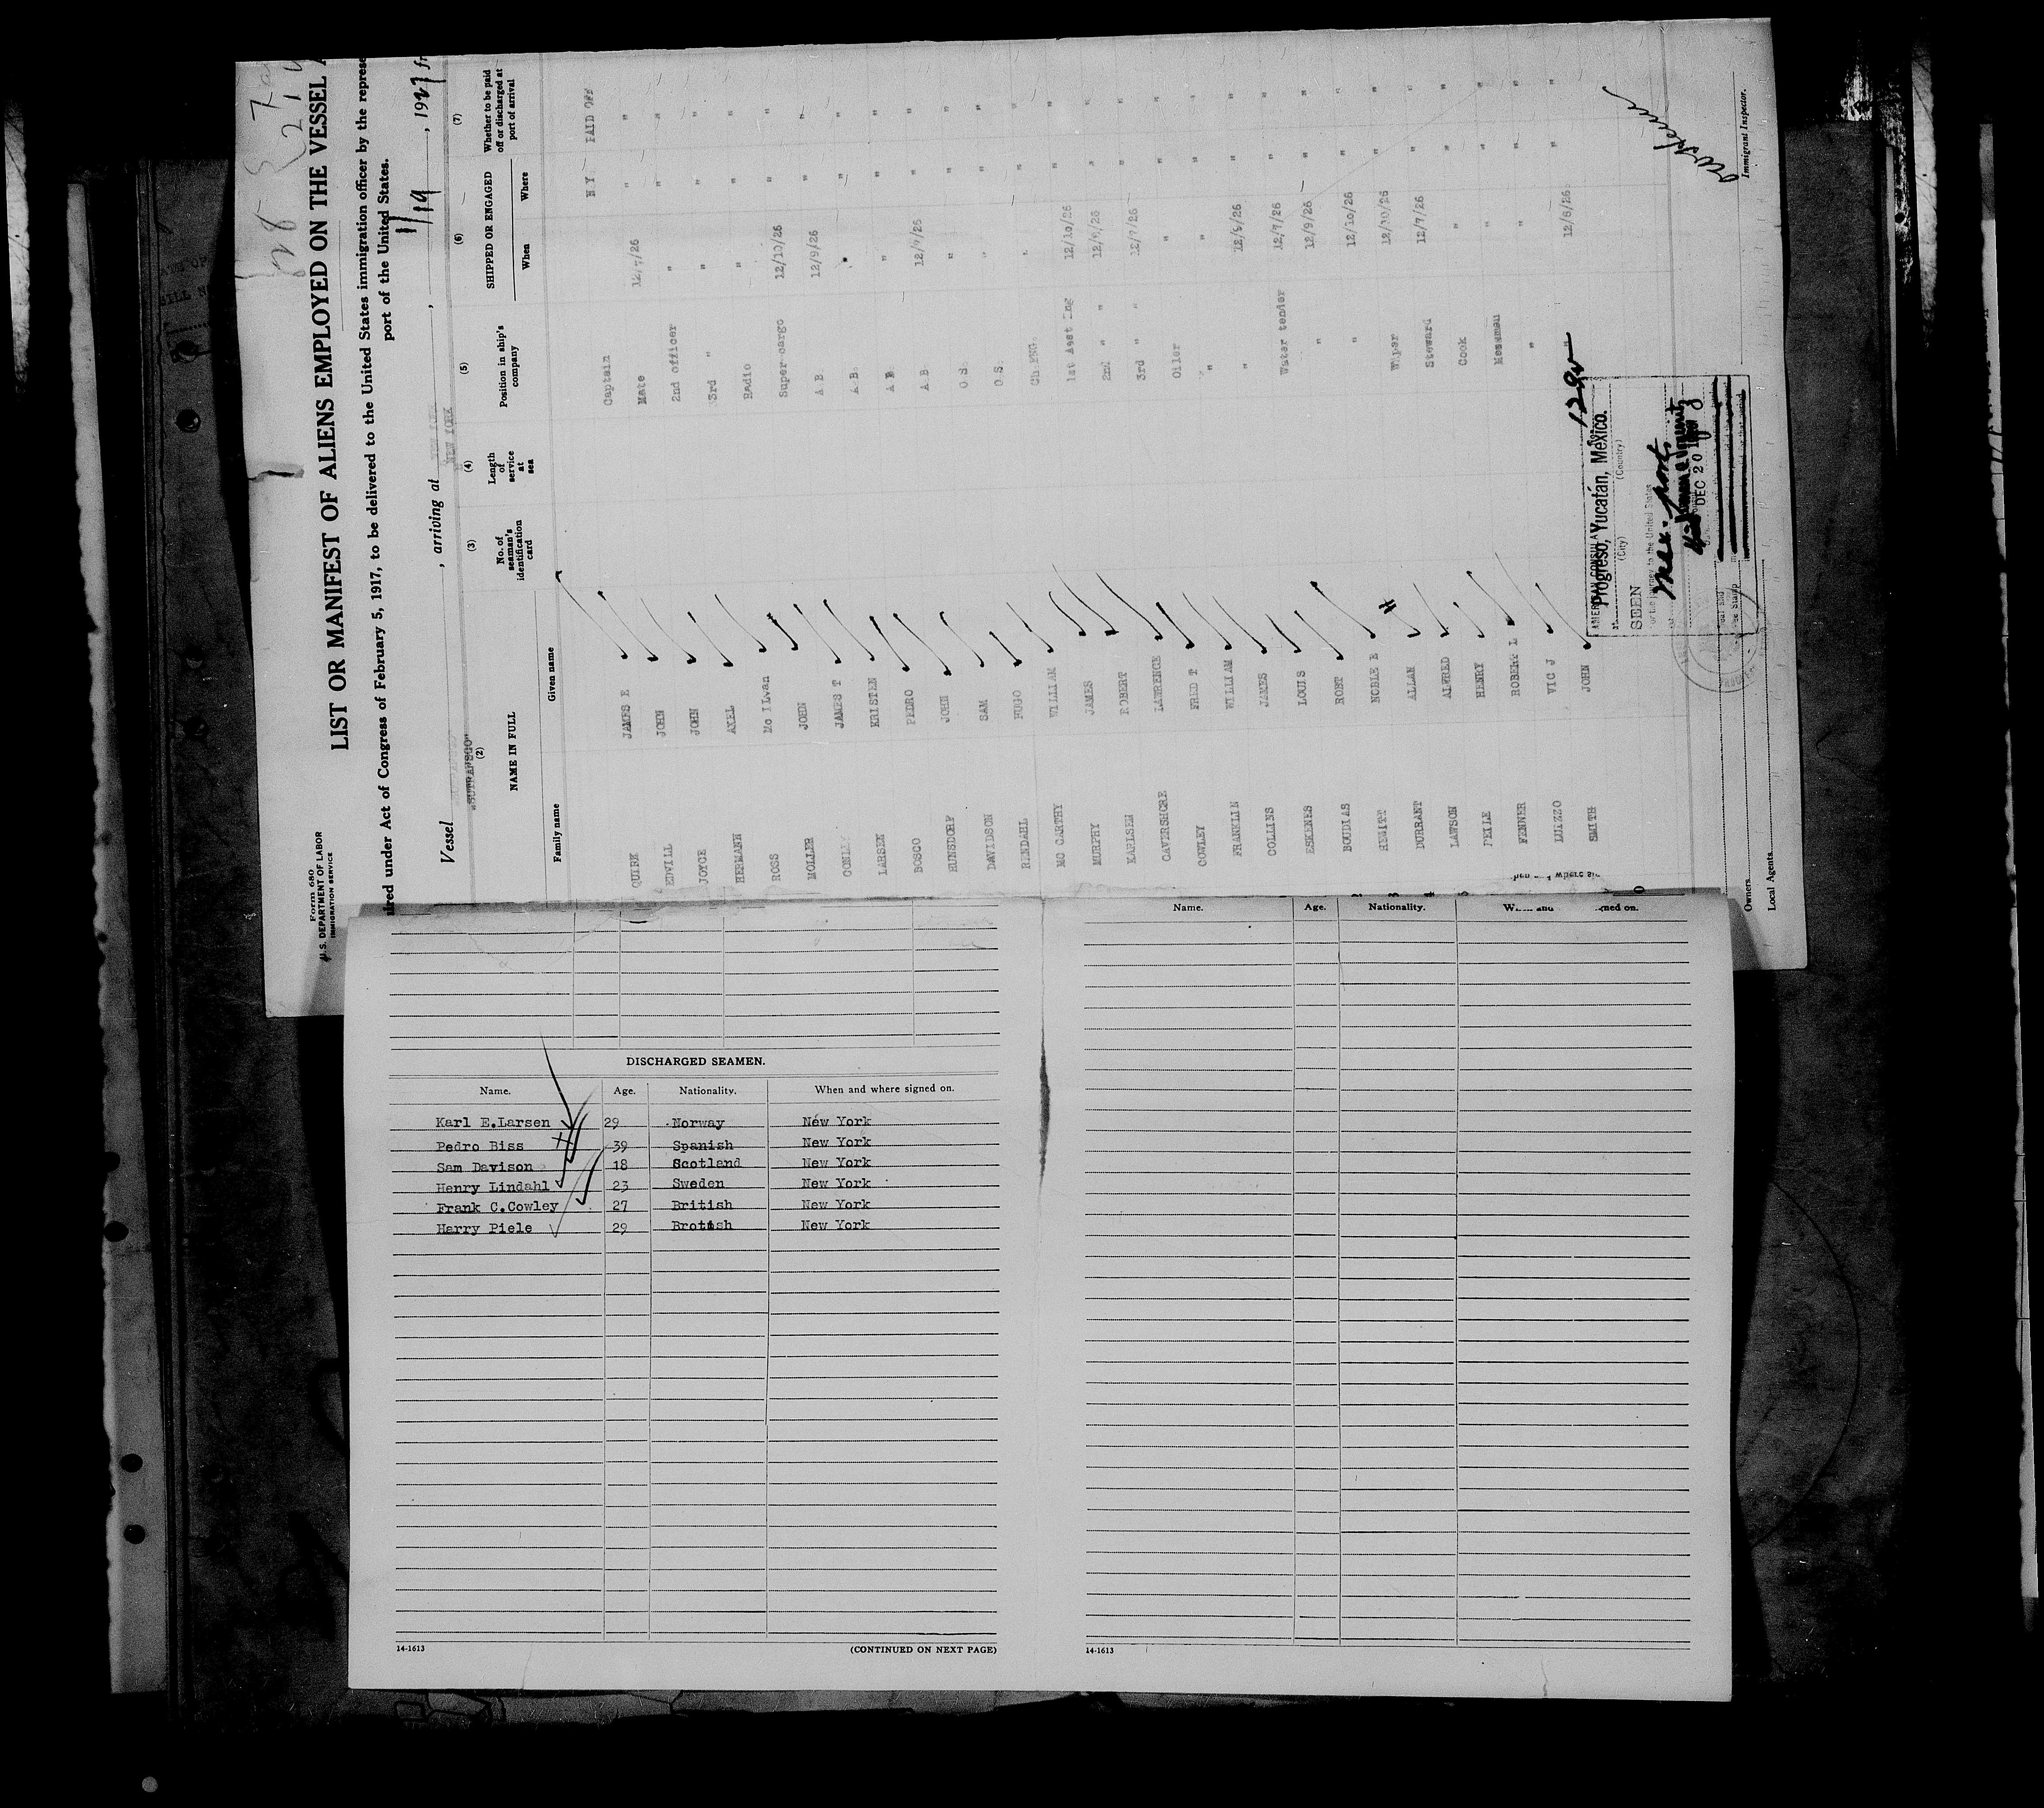 Form 680
U.S. DEPARTMENT OF LABOR
IMMIGRATION SERVICE
LIST OR MANIFEST OF ALIENS EMPLOYED ON THE VESSEL
ired under Act of Congress of February 5, 1917, to be delivered to the United States immigration officer by the represe
port of the United States.
Vessel , arriving at , 1/19 , 1927 fr
"SUTRANSCO" NEW YORK
(2) (3) (4) (5) (6) (7)
NAME IN FULL No. of seaman's identification card Length of service at sea Position in ship's company SHIPPED OR ENGAGED Whether to be paid off or discharged at port of arrival
Family name Given name When Where
Captain N Y PAID OFF
QUIRK JAMES E Mate 12/7/26 " "
EDVILL JOHN 2nd officer " " "
JOYCE JOHN 3rd " " " "
HERMANN AXEL Radio " " "
ROSS Mc ILwan Super-cargo 12/10/26 " "
MOLLER JOHN A B. 12/9/26 " "
CONLEY JAMES T A.B. " " "
LARSEN KRISTEN A B " " "
BOSCO PEDRO A B. 12/9/26 " "
HUNSDORF JOHN O S. " " "
DAVIDSON SAM O.S. " " "
RENDAHL HUGO Ch ENG. " " "
MC CARTHY WILLIAM 1st Asst Eng 12/10/26 " "
MURPHY JAMES 2nd " " 12/8/26 " "
KARLSEN ROBERT 3rd " " 12/7/26 " "
CAVERSHORE LAWRENCE Oiler " " "
COWLEY FRED T " " " "
FRANKLIN WILLIAM " 12/8/26 " "
COLLINS JAMES Water tender 12/7/26 " "
ESKENES LOUIS " 12/9/26 " "
BOUDIAS ROBT " 12/10/26 " "
HEWITT NOBLE E Wiper 12/10/26 " "
DURRANT ALLAN Steward 12/7/26 " "
LAWSON ALFRED Cook " " "
PEILE HENRY Messman " " "
FENNER ROBERT L " " " "
LUIZZO VIC J " 12/6/26 " "
SMITH JOHN
AMERICAN CONSULA
Progreso, Yucatán, Mexico.
(City) (Country)
SEEN
For the journey to the United States
DEC 20
Immigrant Inspector.
Owners
Local Agents
Name. Age. Nationality. ned on.
DISCHARGED SEAMEN.
Name. Age. Nationality. When and where signed on.
Karl E.Larsen 29 Norway New York
Pedro Biss 39 Spanish New York
Sam Davison 18 Scotland New York
Henry Lindahl 23 Sweden New York
Frank C.Cowley 27 British New York
Harry Piele 29 Brotish New York
14-1613 (CONTINUED ON NEXT PAGE)
14-1613